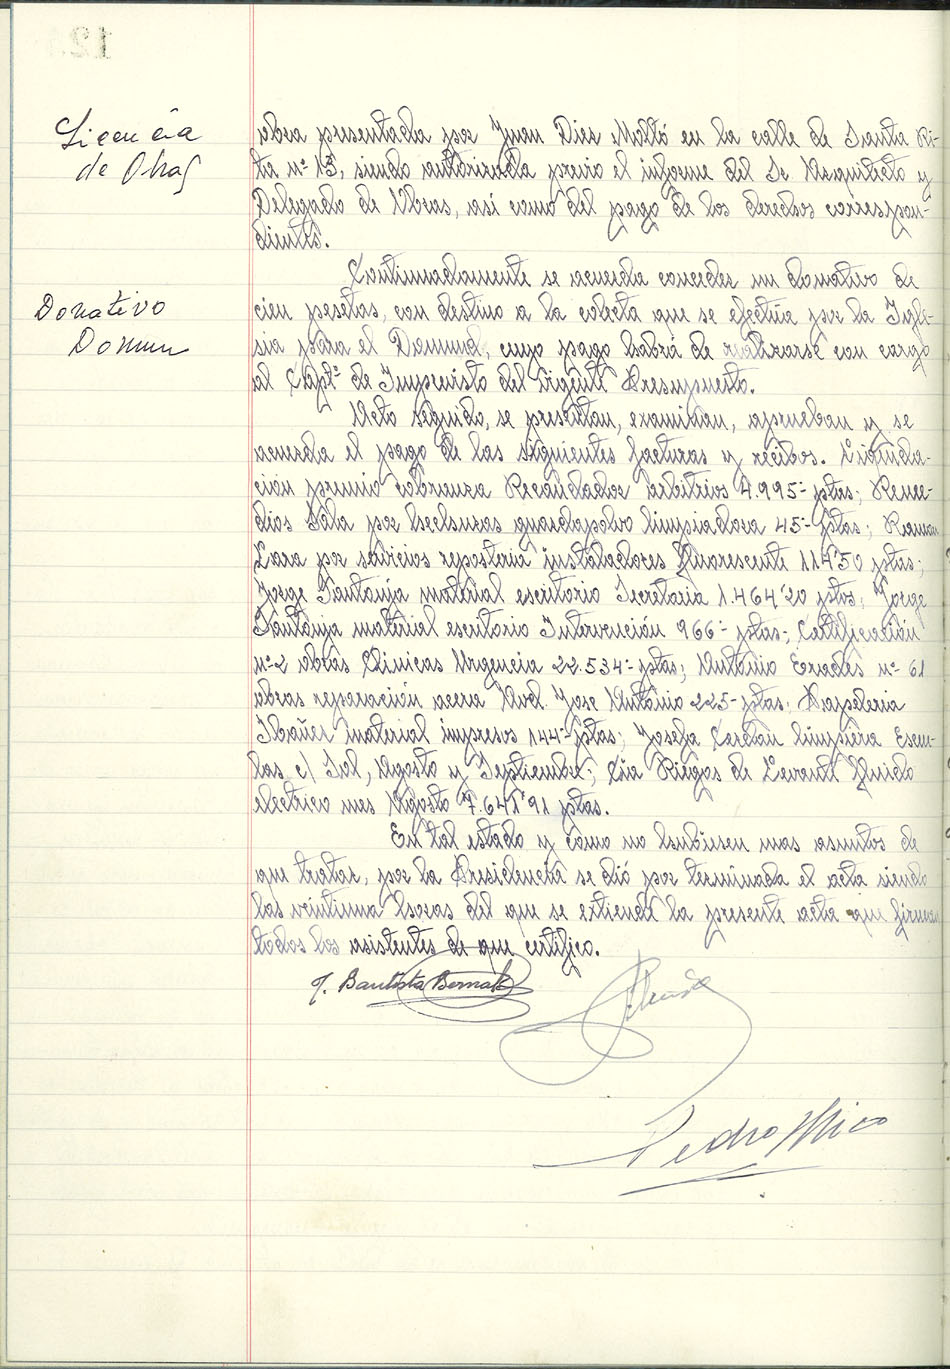 Licencia
de Obras
obra presentada por Juan Dies Moltó en la calle de Santa Ri-
ta nº 13, siendo autorizada previo el informe del Sr Arquitecto y
Delegado de Obras, así como del pago de los derechos correspon-
dientes.
Donativo
Domun
Continuadamente se acuerda conceder un donativo de
cien pesetas, con destino a la colecta que se efectúa por la Igle-
sia para el Domund, cuyo pago habrá de realizarse con cargo
al Capº de Imprevisto del vigente Presupuesto.
Acto seguido, se presentan, examinan, aprueban y se
acuerda el pago de las siguientes facturas y recibos. Liquida-
ción premio cobranza Recaudador arbitrios 4.995- ptas; Reme-
dios por hechuras guardapolvo limpiadora 45- ptas; Ramon
Lara por servicios reposteria instaladores fluorescente 114'50 ptas;
Jorge Santonja material escritorio Secretaria 1.464'20 ptas; Jorge
Santonja material escritorio Intervención 966- ptas; Certificación
nº 2 obras Clinicas Urgencia 22.534- ptas; Antonio nº 61
obras reparación acera Avd. Jose Antonio 225- ptas; Papeleria
Ibañez material impresos 144- ptas; Josefa limpiera Escue-
las c/ Jul, Agosto y Septiembre; Cia Riegos de Levante fluido
electrico mes Agosto 7.641'91 ptas.
En tal estado y como no hubiesen mas asuntos de
que tratar, por la Presidencia se dió por terminada el acta siendo
las veintiuna horas del que se extiende la presente acta que firman
todos los asistentes de que certifico.
J. Bautista Bernabe
Pedro Mico